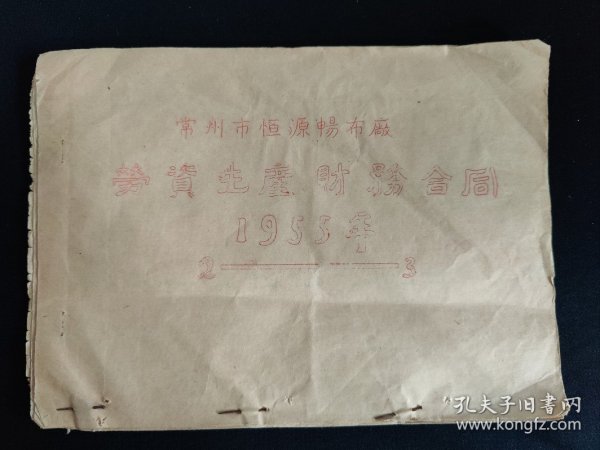 常州市恒源暢布廠
勞資生產財務合同
1955年
2——3
孔夫子旧書网
www.kongfz.com